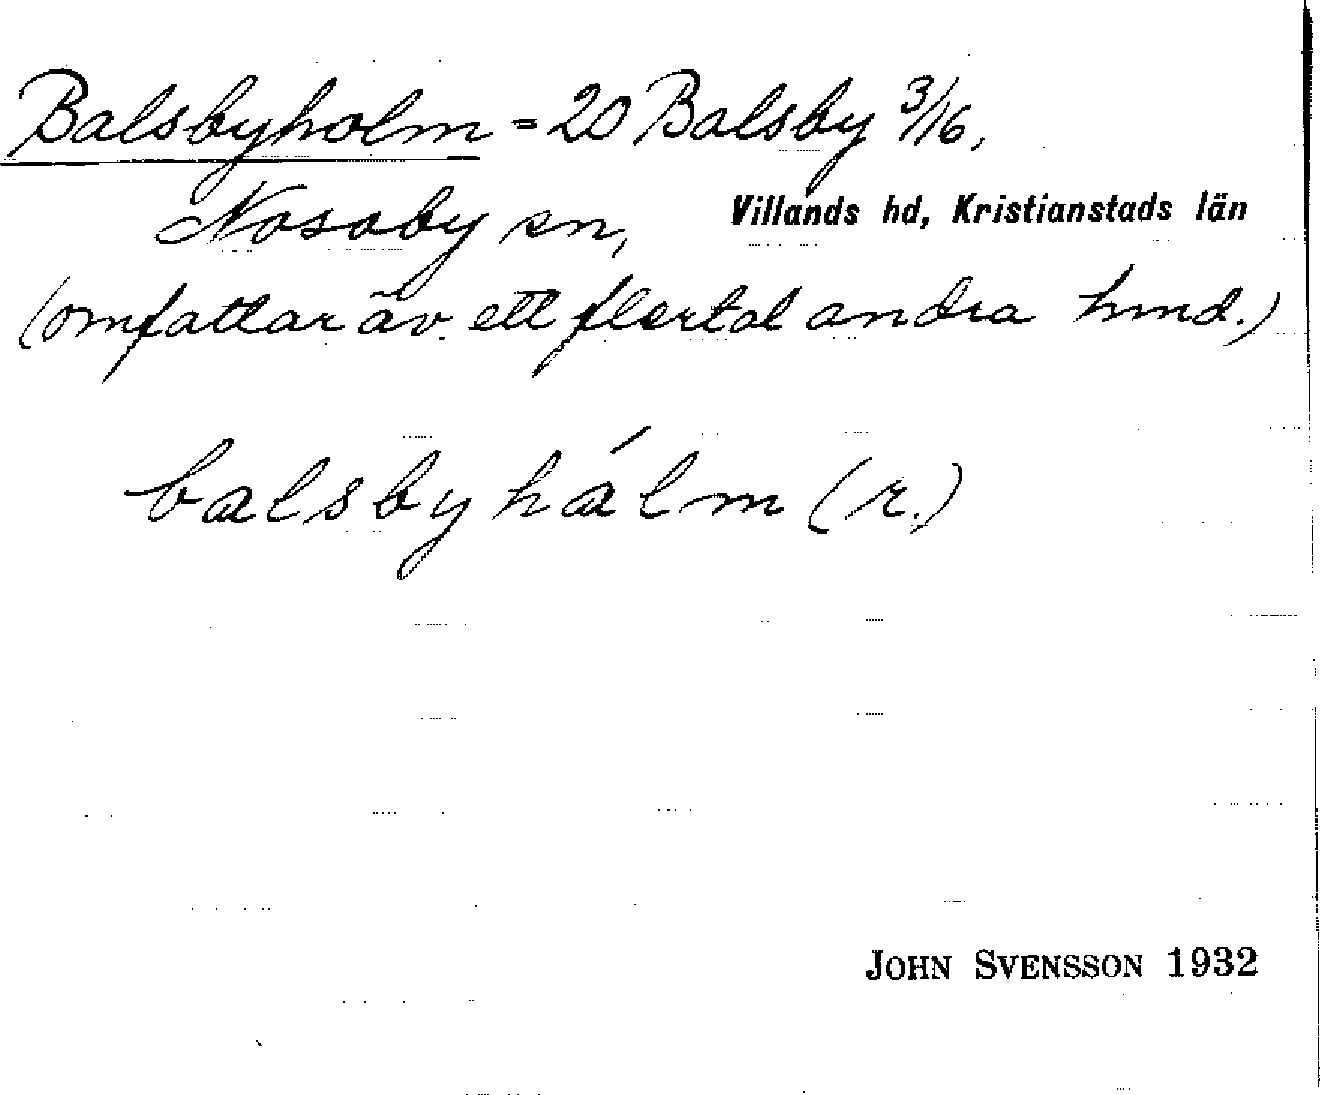 Balsbyholm = 20 Balsby 3/16,
Nosaby sn, Villands hd, Kristianstads län
(omfattar äv. ett flertal andra hmd.)
balsbyhálm (r.)
JOHN SVENSSON 1932